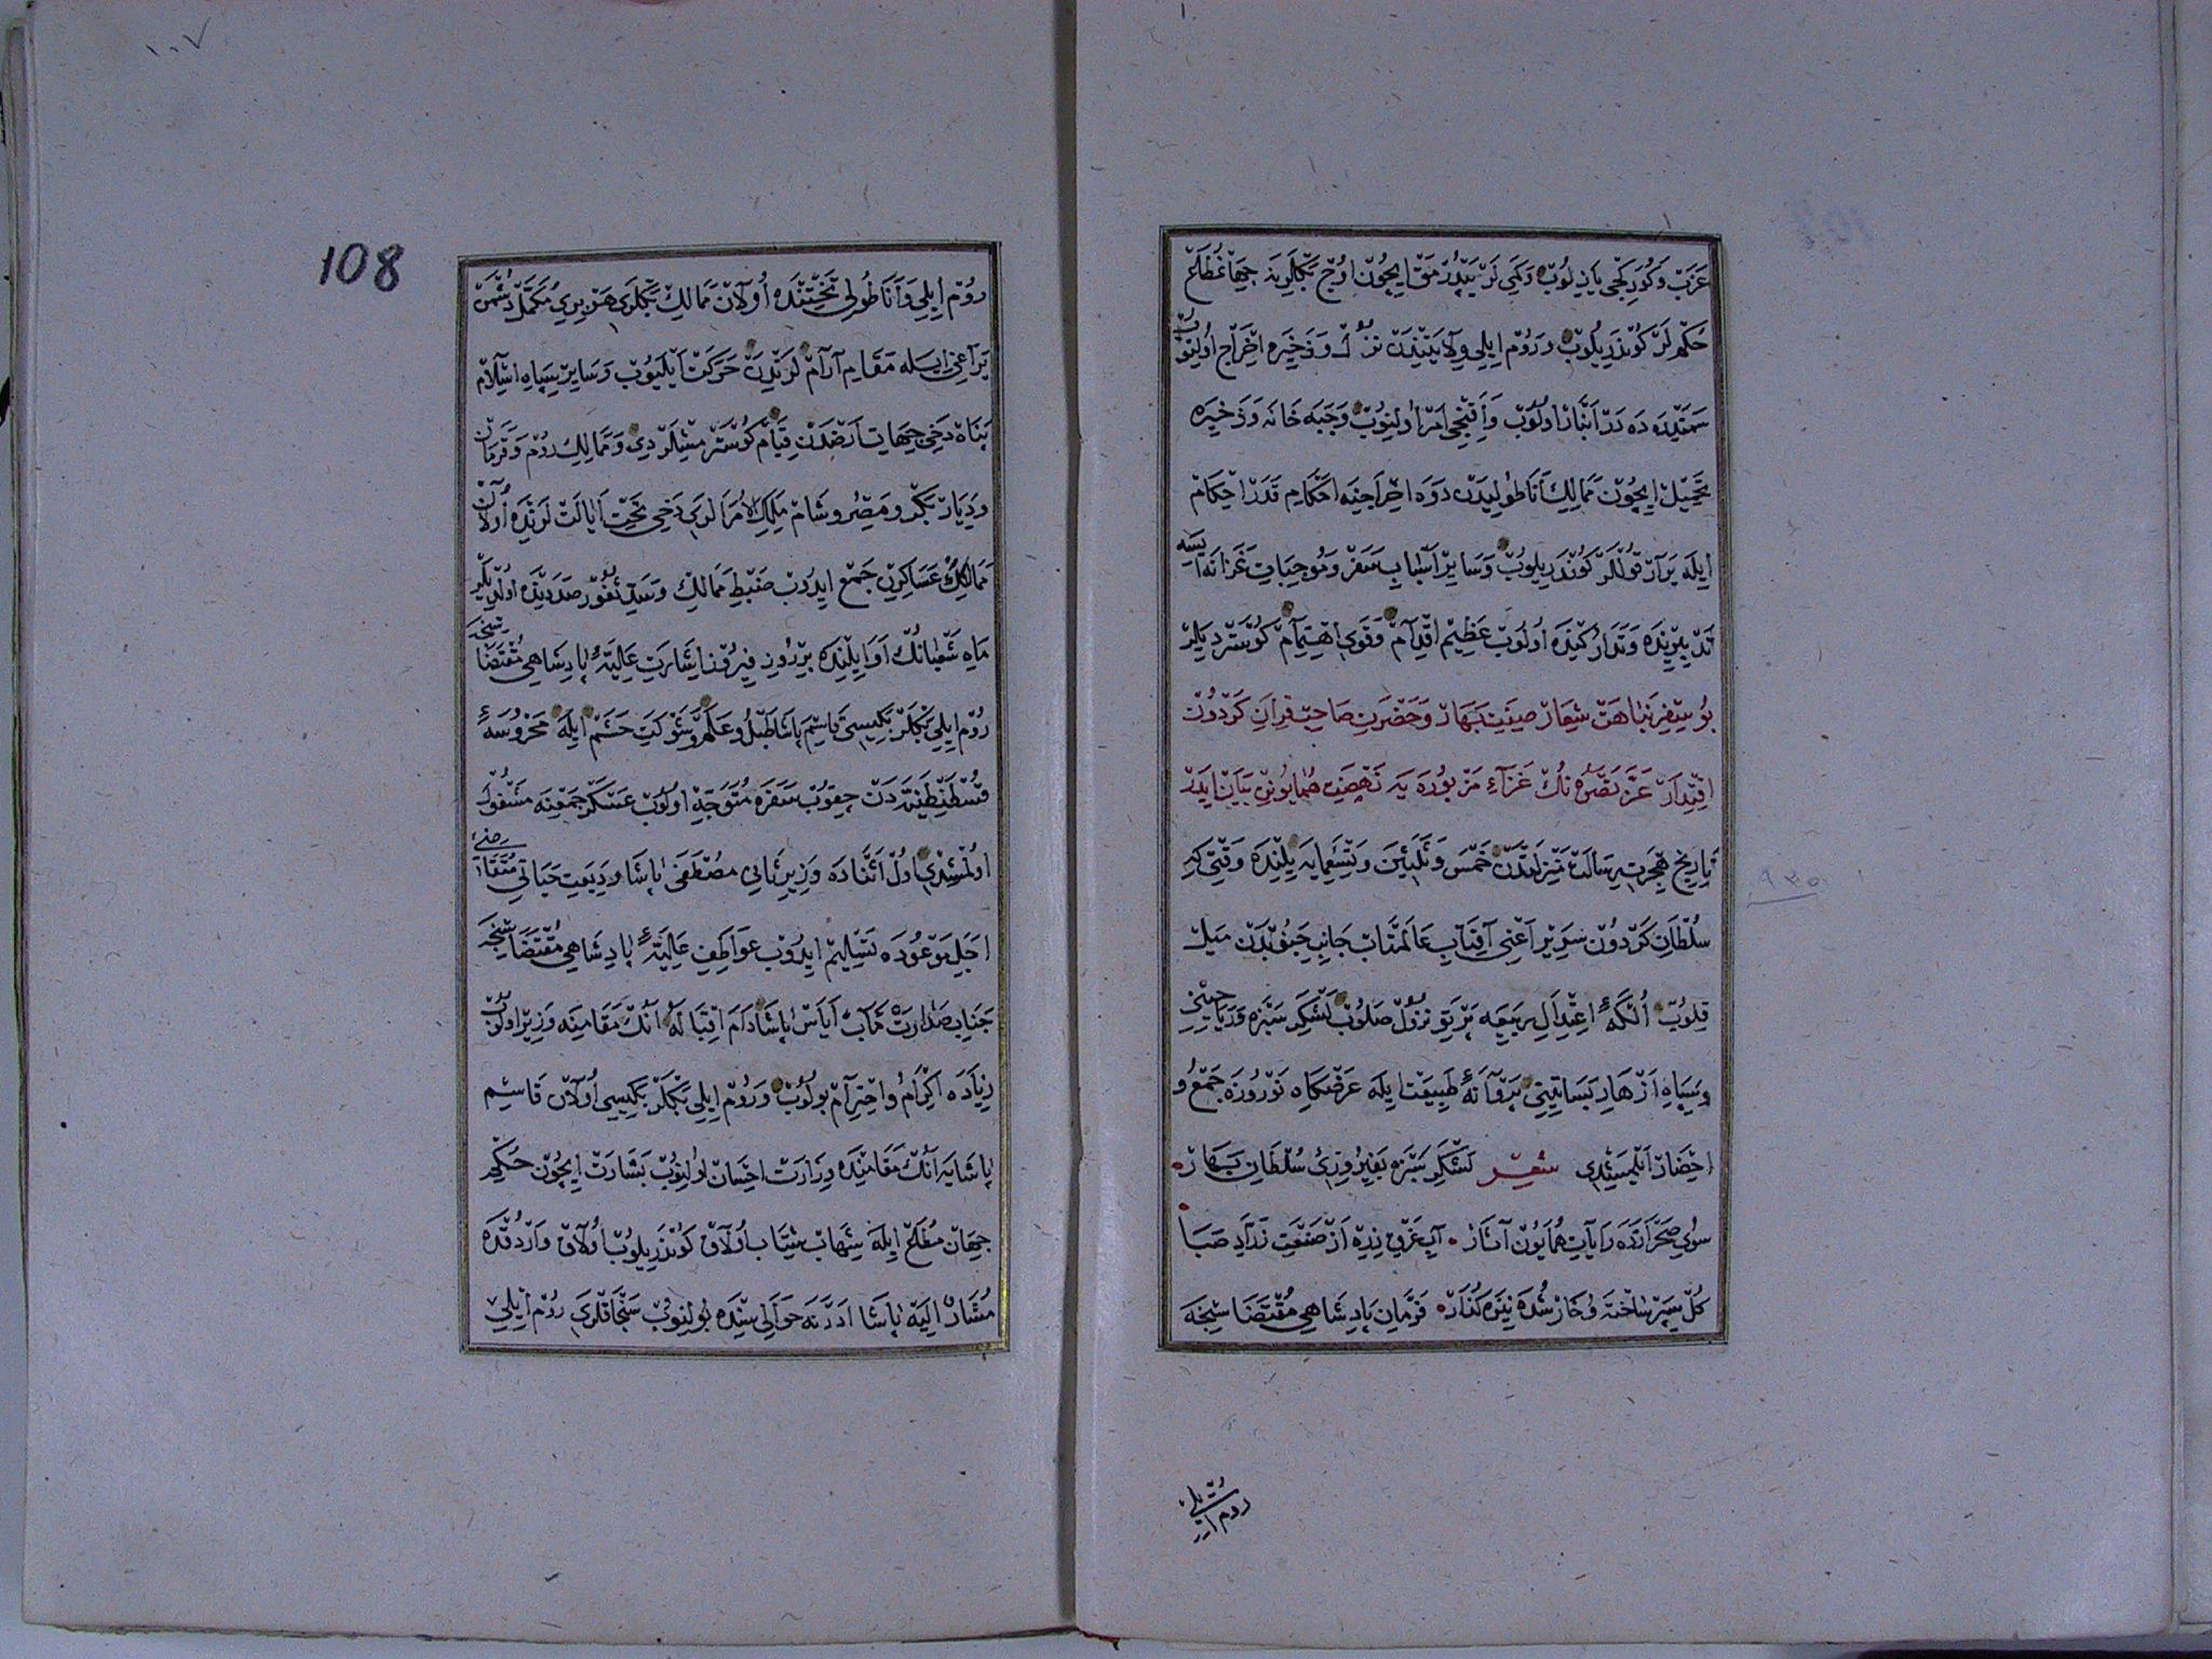 عزب و كوركجى يازيلوب و كمى لر يتپدرمق ايچون اوج بكلرينه جهانمطاع
حكملر كوندريلوب و روم ايلى ولايتيندن نزل و ذخيره اخراج اولنوب
سمتيده ده در انبار اولوب و اقنجى امر اولنوب و جبه خانه و ذخيره
تحميل ايچون ممالك اناطوليدن دوه اخراجنه احكام قدر احكام
ايله يرار قوللر كوندريلوب و ساير اسباب سفر و موجبات غزا نه ايسه
تدبيرنده و تداركينده اولوب عظيم اقدام و قوى اهتمام كوستردیلر
بو سفر نباهت شعار صيت بهار و حضرت صاحب قران كردون
اقتدار عز نصره نك غزاء مزبوره يه نهضت همايونن بيان ايدر
تاريخ هجرت رسالت منزلتدن خمس و ثلثين و تسعمايه ييلنده وقتى كه
سلطان كردون سرير اعنى آفتاب عالمتاب جانب جنوبدن ميل
قلوب النكهٔ اعتدال ربيعه پرتو نزول صلوب لشكر سبزه و رياحينى
و سپاه ازهار بساتينى پروانهٔ طبيعت ايله عرضكاه نوروزه جمع و
احضار ايلمشيدى شعر لشكر سبزه بفيروزى سلطان بهار
سوى صحرا زده رايات همايون آثار آب غرق زره از صنعت زراد صبا
كل سپر ساخته و خار شده نيزه كذار فرمان پادشاهى مقتضاسنجه
روم ايلى
١٠٧
108
روم ايلى و اناطولى تختنده اولان ممالك بكلرى هر برى مكمل دشمن
يراغى ايله مقام آرام لرندن حركت ايليوب و ساير سپاه اسلام
پناه دخى جهات ارضدن قيام كوسترمشلردى و ممالك روم و قرمان
و ديار بكر و مصر و شام ملك الامرالرى دخى تحت ايالت لرنده اولان
ممالكك عساكرين جمع ايدوب ضبط ممالك و سد ثغور صددينده اولديلر
ماه شعبانك اوايلينده بر روز فيروز اشارت عاليهٔ پادشاهى مقتضاسنجه
روم ايلى بكلربكيسى قاسم پاشا طبل و علم و شوكت حشم ايله محروسهٔ
قسطنطنيه دن چقوب سفره متوجه اولوب عسكر جمعنه مشغول
اولمشدى اول اثناده وزير ثانى مصطفى پاشا وديعت حياتى متقاضئ
اجل موعوده تسليم ايدوب عواطف عاليهٔ پادشاهى مقتضاسنجه
جناب صدارت مآب اياس پاشا دام اقباله انك مقامنه وزير اولوب
زياده اكرام و احترام بولوب و روم ايلى بكلربكيسى اولان قاسم
پاشايه انك مقامنده وزارت احسان اولنوب بشارت ايچون حكم
جهان مطاع ايله شهاب شتاب اولاق كوندريلوب اولاق واردوقده
مشار اليه پاشا ادرنه حواليسنده بولنوب سنجاقلرى روم ايلى